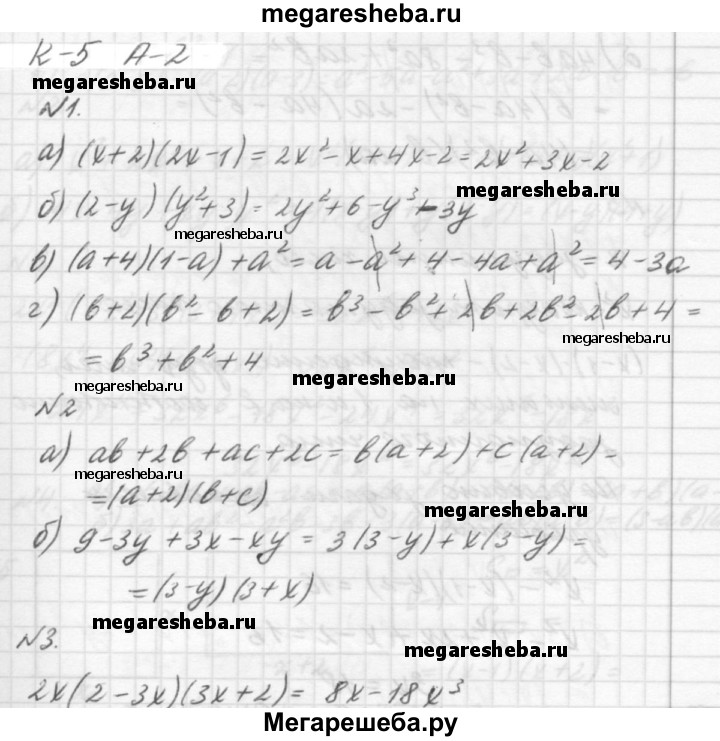 megaresheba.ru
К-5 А-2
megaresheba.ru
№1.
а) (x+2)(2x-1) = 2x²-x+4x-2=2x²+3x-2
megaresheba.ru
б) (2-y)(y²+3)= 2y²+6-y³-3y
megaresheba.ru
в) (a+4)(1-a)+a²=a-a²+4-4a+a²=4-3a
г) (b+2)(b²-b+2)=b³-b²+2b+2b²-2b+4=
megaresheba.ru
=b³+b²+4
megaresheba.ru
megaresheba.ru
№2
а) ab+2b+ac+2c=b(a+2)+c(a+2)=
megaresheba.ru
=(a+2)(b+c)
megaresheba.ru
б) 9-3y+3x-xy=3(3-y)+x(3-y)=
megaresheba.ru
=(3-y)(3+x)
megaresheba.ru
№3.
megaresheba.ru
2x(2-3x)(3x+2)= 8x-18x³
Мегарешеба.ру